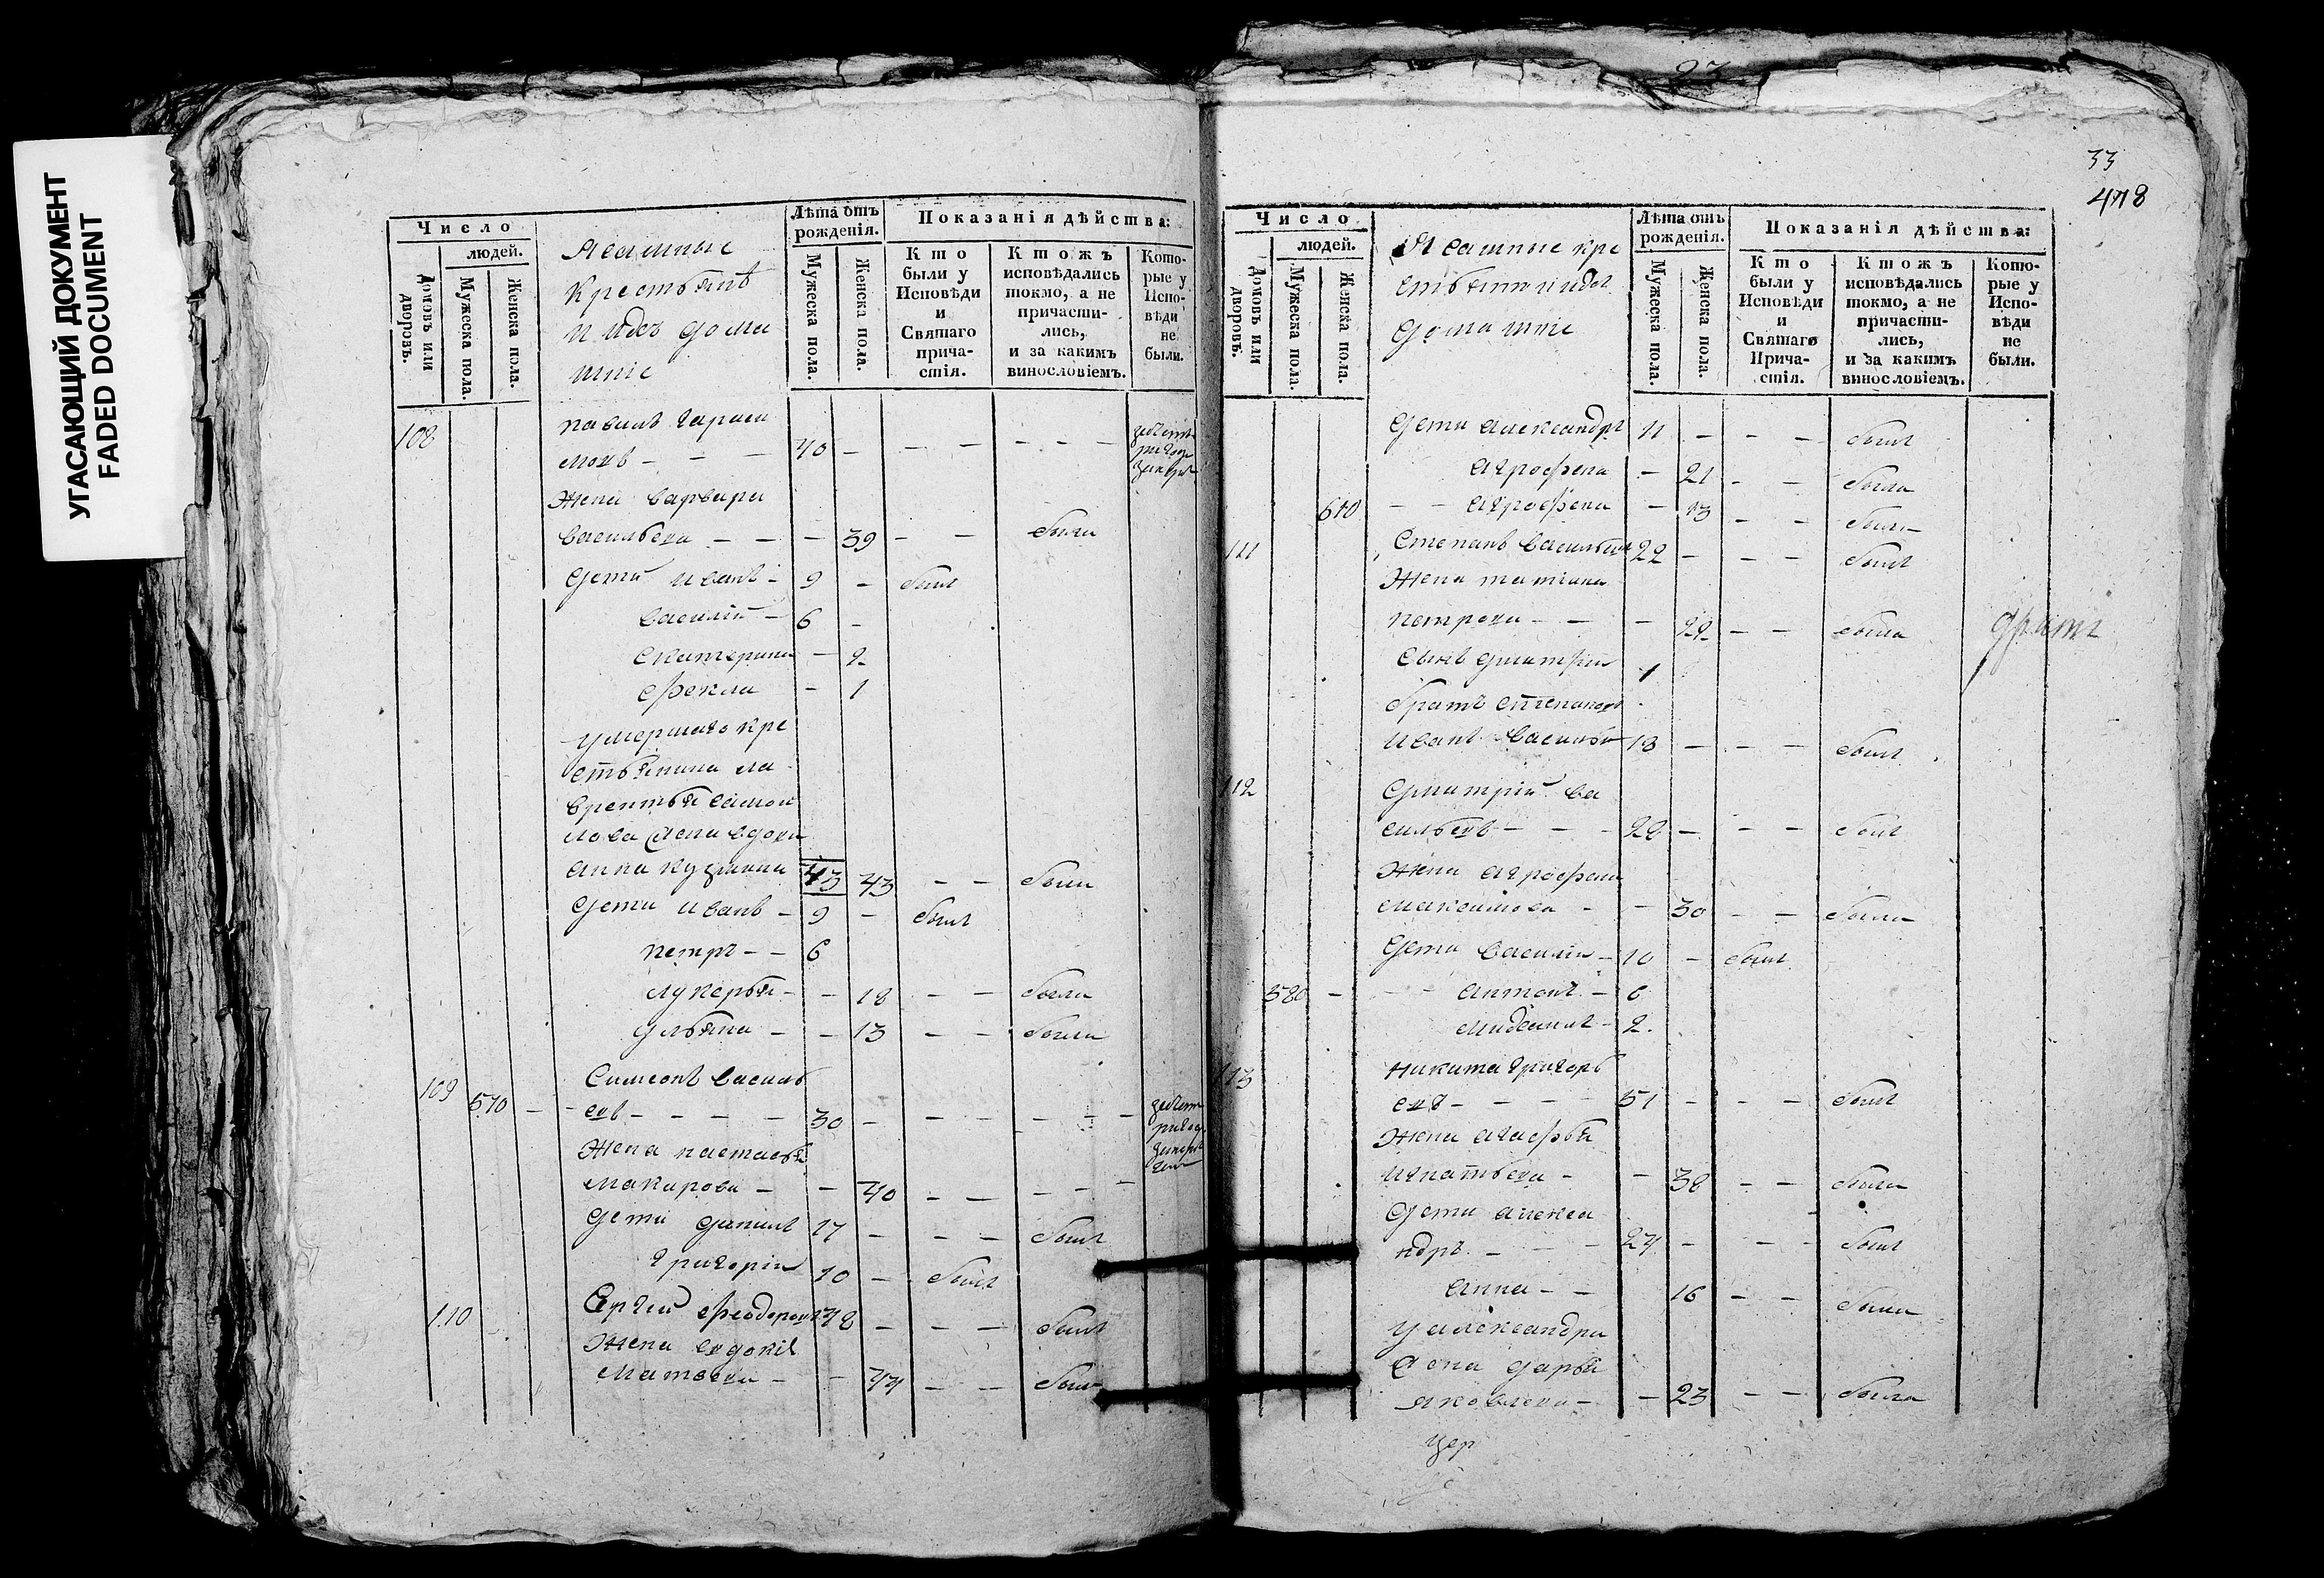 УГАСАЮЩИЙ ДОКУМЕНТ
FADED DOCUMENT
Число
людей.
Домовъ или дворовъ.
Мужеска пола.
Женска пола.
Ясашные
крестьянѣ
и ихъ дома
шніе
Лѣта отъ рожденія.
Мужеска пола.
Женска пола.
Показанія дѣйства:
Кто были у Исповѣди и Святаго причастія.
Кто жъ исповѣдались токмо, а не причастились, и за какимъ винословіемъ.
Которые у Исповѣди не были.
108
павилъ гараси
мовъ - - - 40 - - - - - -
жена варвара
васильева - - - 39 - - была
дети иванъ - 9 - былъ
василій - 6 -
екатерина - 2
фекла - 1
умершаго кре
стьянина ла
врентья самои
лова жена вдова
анна кузмина 43 43 - - была
дети иванъ - 9 - былъ
петръ - - 6
лукерья - - 18 - - была
ульяна - - 13 - - была
109 570 - - Симеонъ василь
евъ - - - - 30 - - - - - -
жена настасья
макарова - - 40 - - - - -
дети данилъ 17 - - - былъ
григорій 10 - былъ
110 Сергій феодоровъ 48 - - - былъ
жена евдокія
матвева - - 44 - - была
23
33
478
Число
людей.
Домовъ или дворовъ.
Мужеска пола.
Женска пола.
Ясашные кре
стьяни и ихъ
домашніе
Лѣта отъ рожденія.
Мужеска пола.
Женска пола.
Показанія дѣйства:
Кто были у Исповѣди и Святаго Причастія.
Кто жъ исповѣдались токмо, а не причастились, и за какимъ винословіемъ.
Которые у Исповѣди не были.
дети александръ 11 - - - былъ
агрофена - 21 - - была
610 - - агрофена - 13 - - была
111 Степанъ васильевъ 22 - - - былъ
жена татіана
петрова - - - 22 - - была
сынъ дмитрій 1
братъ степановъ
иванъ васильевъ 18 - - - былъ
112 дмитрій ва
сильевъ - - - 28 - - - былъ
жена агрофена
максимова - - 30 - - была
дети василій - 10 - былъ
580 - - - антонъ - 6
михаилъ - 2
113 никита григорь
евъ - - - - 51 - - - былъ
жена агафья
игнатьева - - 38 - - была
дети алекса
ндръ - - - 24 - - - былъ
анна - - 16 - - была
у александра
жена дарья
яковлева - - 23 - - была